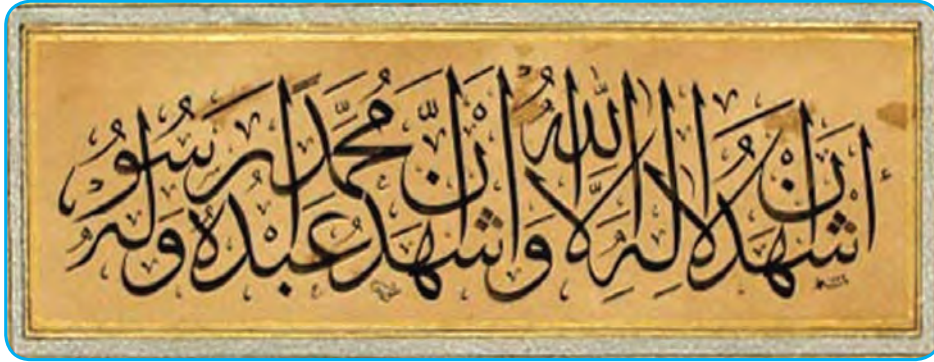 أَشْهَدُ أَنْ لَا إِلٰهَ إِلَّا اللّٰهُ وَأَشْهَدُ أَنَّ مُحَمَّدًا عَبْدُهُ وَرَسُولُهُ